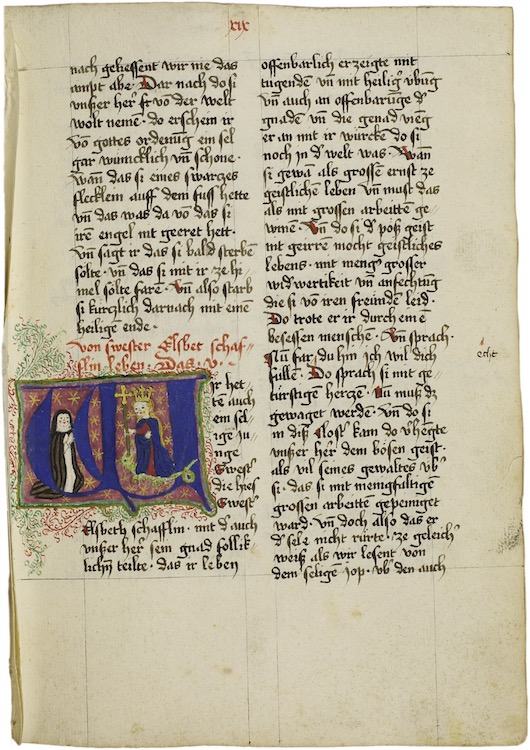 xix
nach geliessent wir nie das
ampt abe · Dar nach do si
vnßer her̄ ſt vō der welt
wolt nemē · do erschein ir
vō gottes ordenūg ein sel
gar wunicklich vn̄ schone ·
wan̄ das si eines swarczes
flecklein auff dem fuss hette
vn̄ das was da vō das si
irē engel nit geeret hett ·
vn̄ sagt ir das si bald sterbē
solte · vn̄ das si mit ir ze hi
mel solte farē · Vn̄ also starb
si kurczlich darnach mit einē
heiligē ende ·
von swester Elsbet schaf
flin leben · Das · v ·
ir het
tē auch
ein sel
ige ju
nge
Swest
die hies
Swest
Elsbeth schafflin · mit d' auch
vnßer her̄ sein gnad follik
lichn̄ teilte · das ir leben
offenbarlich er zeigte mit
tugendē vn̄ mit heilig' vbūg
vn̄ auch an offenbarūge d'
gnadē vn̄ die genad vieng
er an mit ir würckē do si
noch in d' welt was · Wan̄
si gewan als grossē ernst ze
geistlichen lebē vn̄ must das
als mit grossen arbeittē ge
winē · Vn̄ do si d' pöß geist
nit geirrē mocht geistliches
lebens · mit meng' grosser
wid'wertikeit vn̄ anfechtūg
die si vō iren freundē leid ·
Do trote er ir durch einē
besessen menschē · Vn̄ sprach ·
Nu far du hin ich wil dich
echt
fullē · Do sprach si mit ge
türstigem herczē · Nu muß dz
gewaget werdē · Vn̄ do si
in diß closter kam do v'hengte
vnßer her̄ dem bösen geist ·
als vil seines gewaltes vb'
si · das si mit menigfultig'
grossen arbeitē gepeiniget
ward · vn̄ doch also das er
d' sele nicht rürte · ze geleich'
weiß als wir lesent von
dem seligen Jop · vb' den auch